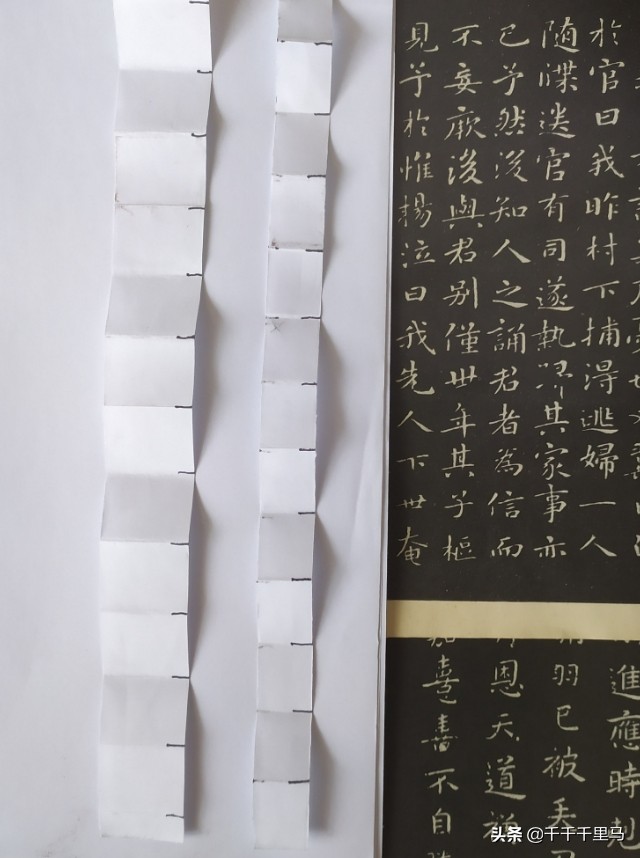 於官曰我昨村下捕得逃婦一人
随牒送官有司遂執其家事亦
已予然後知人之誦君者為信而
不妄厥後與君别僅丗年其子樞
見予於惟揚泣曰我先人下丗奄
進應時
羽已被
恩天道
憙喜不自
头条 @千千千里马